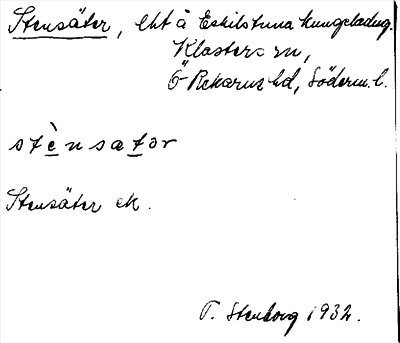 Stensäter, lht å Eskilstuna kungsladug.
Klosters sn,
Ö Rekarne hd, Söderm. l.
stènsatər
Stensäter ek.
T. Stenborg 1932.